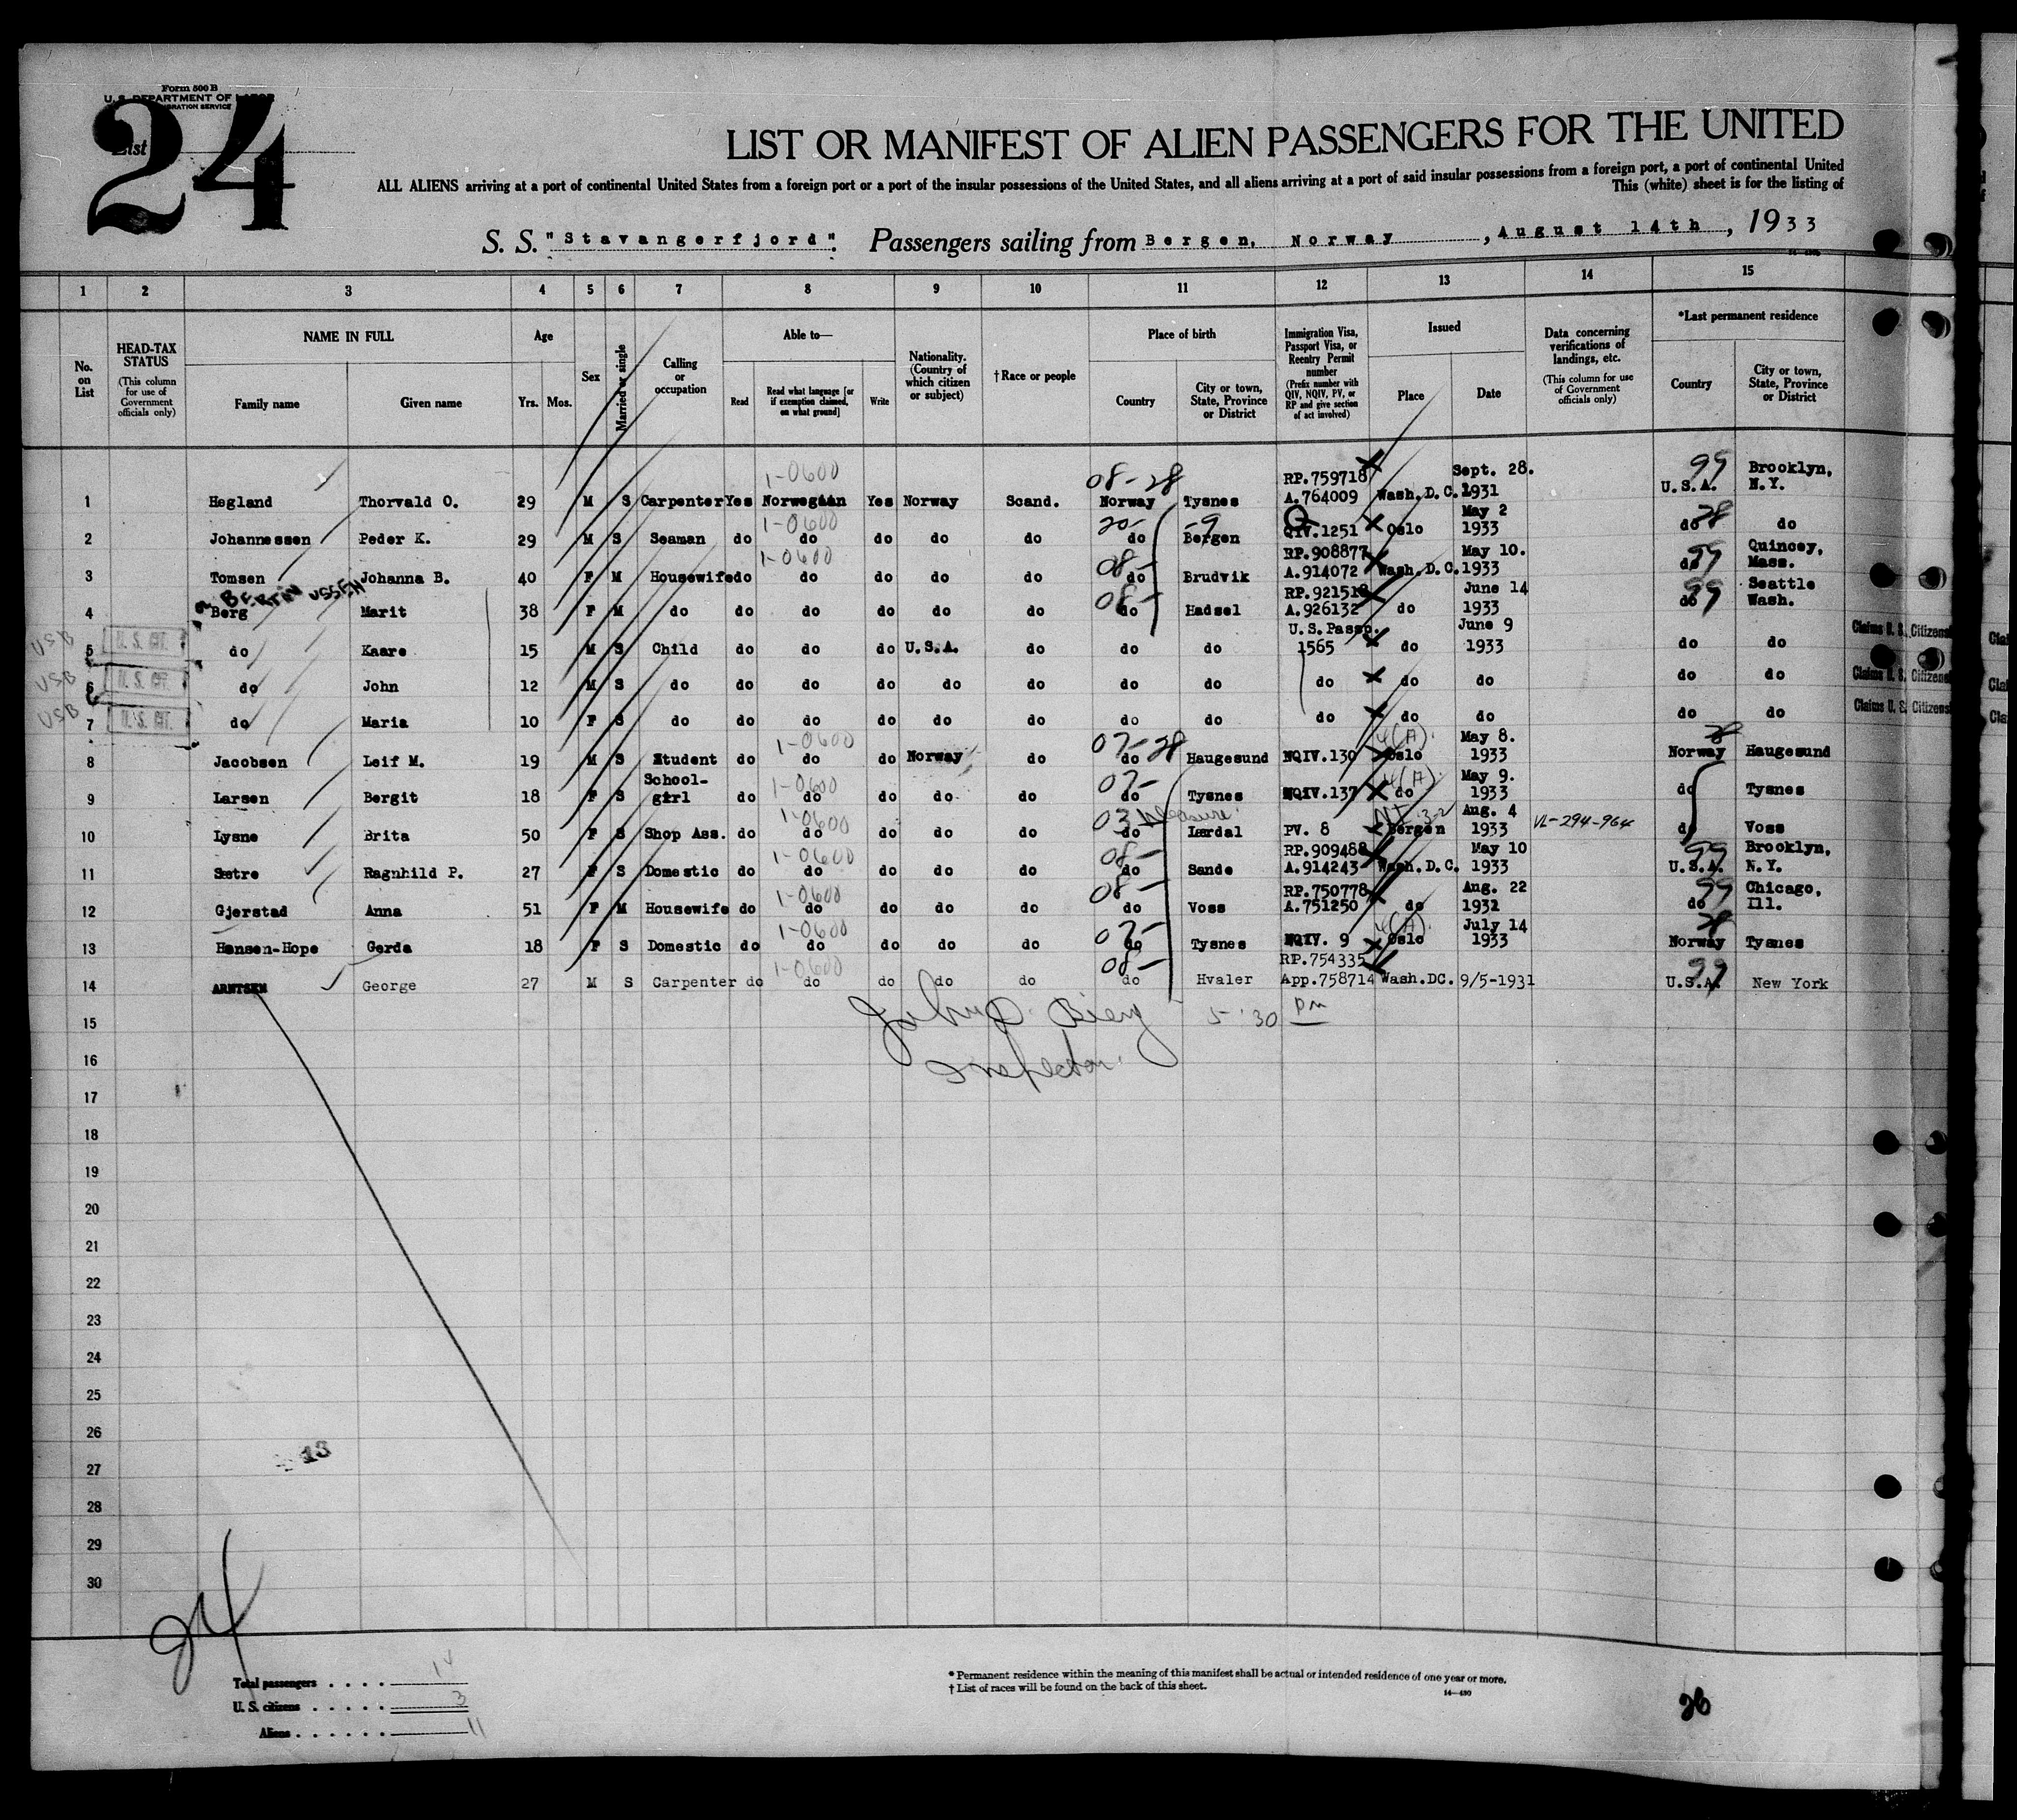 Form 500 B
U. S. DEPARTMENT OF LABOR
IMMIGRATION SERVICE
List 24
LIST OR MANIFEST OF ALIEN PASSENGERS FOR THE UNITED
ALL ALIENS arriving at a port of continental United States from a foreign port or a port of the insular possessions of the United States, and all aliens arriving at a port of said insular possessions from a foreign port, a port of continental United
This (white) sheet is for the listing of
S. S. "Stavangerfjord". Passengers sailing from Bergen, Norway, August 14th, 1933
1 2 3 4 5 6 7 8 9 10 11 12 13 14 15
No. on List
HEAD-TAX STATUS (This column for use of Government officials only)
NAME IN FULL Family name Given name
Age Yrs. Mos.
Sex
Married or single
Calling or occupation
Able to— Read Read what language [or if exemption claimed, on what ground] Write
Nationality. (Country of which citizen or subject)
†Race or people
Place of birth Country City or town, State, Province or District
Immigration Visa, Passport Visa, or Reentry Permit number (Prefix number with QIV, NQIV, PV, or RP and give section of act involved)
Issued Place Date
Data concerning verifications of landings, etc. (This column for use of Government officials only)
*Last permanent residence Country City or town, State, Province or District
1-0600 08-28 RP.759718 Sept. 28. 99 Brooklyn,
1 Hegland Thorvald O. 29 M S Carpenter Yes Norwegian Yes Norway Scand. Norway Tysnes A.764009 Wash.D.C. 1931 U.S.A. N.Y.
1-0600 20- -9 May 2 28
2 Johannessen Peder K. 29 M S Seaman do do do do do do Bergen QIV.1251 Oslo 1933 do do
1-0600 08- RP.908877 May 10. 99 Quincey,
3 Tomsen Johanna B. 40 F M Housewife do do do do do do Brudvik A.914072 Wash.D.C. 1933 do Mass.
08- RP.921518 June 14 99 Seattle
4 Berg Marit 38 F M do do do do do do do Hadsel A.926132 do 1933 do Wash.
U.S.Passp. June 9
USB U. S. CIT. 5 do Kaare 15 M S Child do do do U.S.A. do do do 1565 do 1933 do do Claims U. S. Citizens
USB U. S. CIT. 6 do John 12 M S do do do do do do do do do do do do do Claims U. S. Citizens
USB U. S. CIT. 7 do Maria 10 F S do do do do do do do do do do do do do Claims U. S. Citizens
1-0600 07-28 4(A) May 8. 28
8 Jacobsen Leif M. 19 M S Student do do do Norway do do Haugesund NQIV.130 Oslo 1933 Norway Haugesund
School- 1-0600 07- 4(A) May 9.
9 Larsen Bergit 18 F S girl do do do do do do Tysnes NQIV.137 do 1933 do Tysnes
1-0600 03 Pleasure 3-2 Aug. 4
10 Lysne Brita 50 F S Shop Ass. do do do do do do Lærdal PV. 8 Bergen 1933 VL-294-964 do Voss
1-0600 08- RP.909488 May 10 99 Brooklyn,
11 Sætre Ragnhild P. 27 F S Domestic do do do do do do Sande A.914243 Wash.D.C. 1933 U.S.A. N.Y.
1-0600 08- RP.750778 Aug. 22 99 Chicago,
12 Gjerstad Anna 51 F M Housewife do do do do do do Voss A.751250 do 1932 do Ill.
1-0600 07- 4(A) July 14 28
13 Hansen-Hope Gerda 18 F S Domestic do do do do do do Tysnes NQIV. 9 Oslo 1933 Norway Tysnes
1-0600 08- RP.754335 99
14 ARNTSEN George 27 M S Carpenter do do do do do do Hvaler App.758714 Wash.DC. 9/5-1931 U.S.A. New York
15 5:30 pm
16 Inspector.
17
18
19
20
21
22
23
24
25
26
27
28
29
30
24
Total passengers . . . . 14
U. S. citizens . . . . . 3
Aliens . . . . . . 11
* Permanent residence within the meaning of this manifest shall be actual or intended residence of one year or more.
† List of races will be found on the back of this sheet.
14—430
26